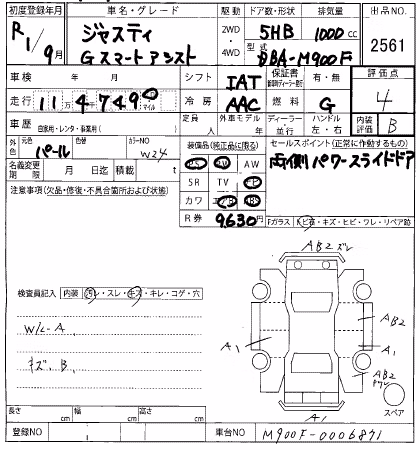 初度登録年月 車名・グレード 駆動 ドア数・形状 排気量 出品NO
R1/9月 ジャスティ 2WD 5HB 1000cc 2561
Gスマートアシスト 4WD 型式 DBA-M900F
車検 年 月 シフト IAT 保証書 有・無 評価点
走行 11万47490 マイル 冷房 AAC 燃料 G 4
車歴 自家用・レンタ・事業用( ) 定員 人 外車モデル 年 ディーラー・並行 ハンドル 左・右 内装評価 B
外色 元色 パール 色替 カラーNO W24 装備品(純正品に限る) セールスポイント(正常に作動するもの)
名義変更期限 月 日迄 積載 t PS PW AW 両側パワースライドドア
注意事項(欠品・修復・不具合箇所および状態) SR TV
カワ ABS
R券 9,630 Fガラス 飛び石・キズ・ヒビ・ワレ・リペア跡
AB2 ズレ
検査員記入 内装 汚レ・スレ・キズ・キレ・コゲ・穴
W/L-A
キズ.B
A1
AB2
A1
AB2
A1
スペア
長さ cm 幅 cm 高さ cm
登録NO 車台NO M900F-0006871